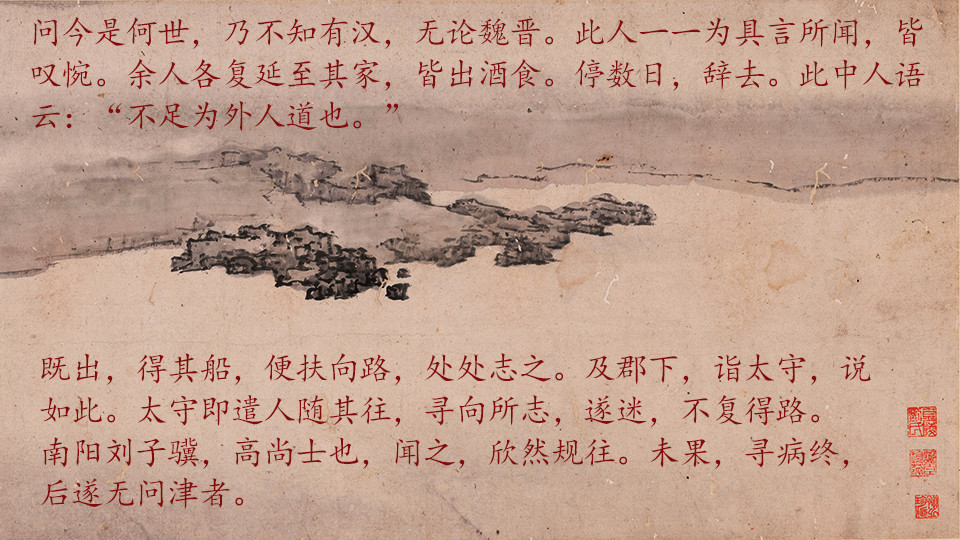 问今是何世，乃不知有汉，无论魏晋。此人一一为具言所闻，皆
叹惋。余人各复延至其家，皆出酒食。停数日，辞去。此中人语
云：“不足为外人道也。”
既出，得其船，便扶向路，处处志之。及郡下，诣太守，说
如此。太守即遣人随其往，寻向所志，遂迷，不复得路。
南阳刘子骥，高尚士也，闻之，欣然规往。未果，寻病终，
后遂无问津者。